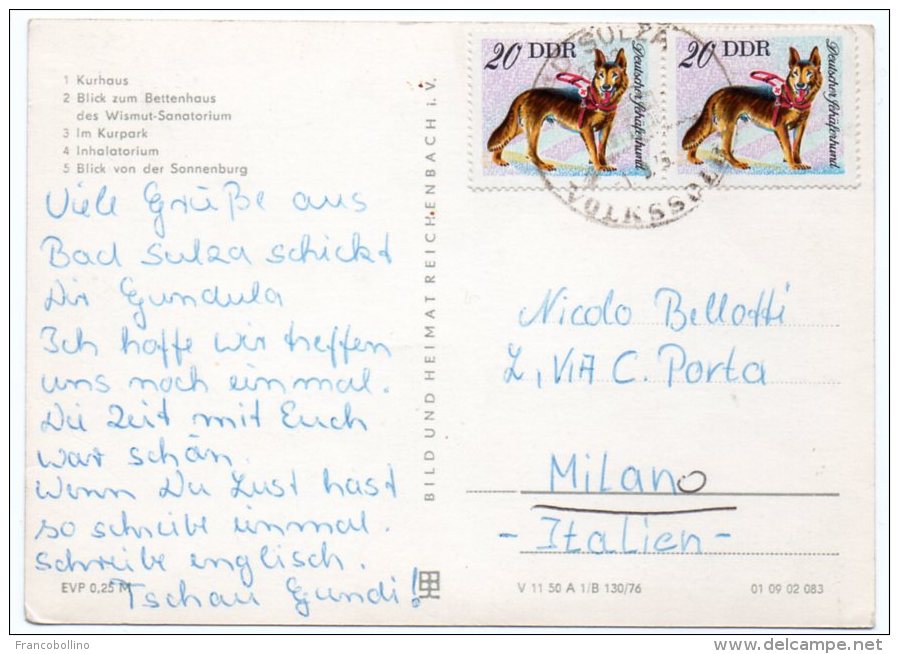 1 Kurhaus
2 Blick zum Bettenhaus
des Wismut-Sanatorium
3 Im Kurpark
4 Inhalatorium
5 Blick von der Sonnenburg
Viele Grüße aus
Bad Sulza schickt
Dir Gundula
Ich hoffe wir treffen
uns noch einmal.
Die Zeit mit Euch
war schön.
Wenn Du Lust hast
so schreibe einmal.
schreibe englisch.
Tschau Gundi!
EVP 0,25 M
BILD UND HEIMAT REICHENBACH i. V.
20 DDR
Deutscher Schäferhund
20 DDR
Deutscher Schäferhund
SULZA
Nicolo Bellotti
2, VIA C. Porta
Milano
- Italien -
V 11 50 A 1/B 130/76
01 09 02 083
Francobollino
www.delcampe.net